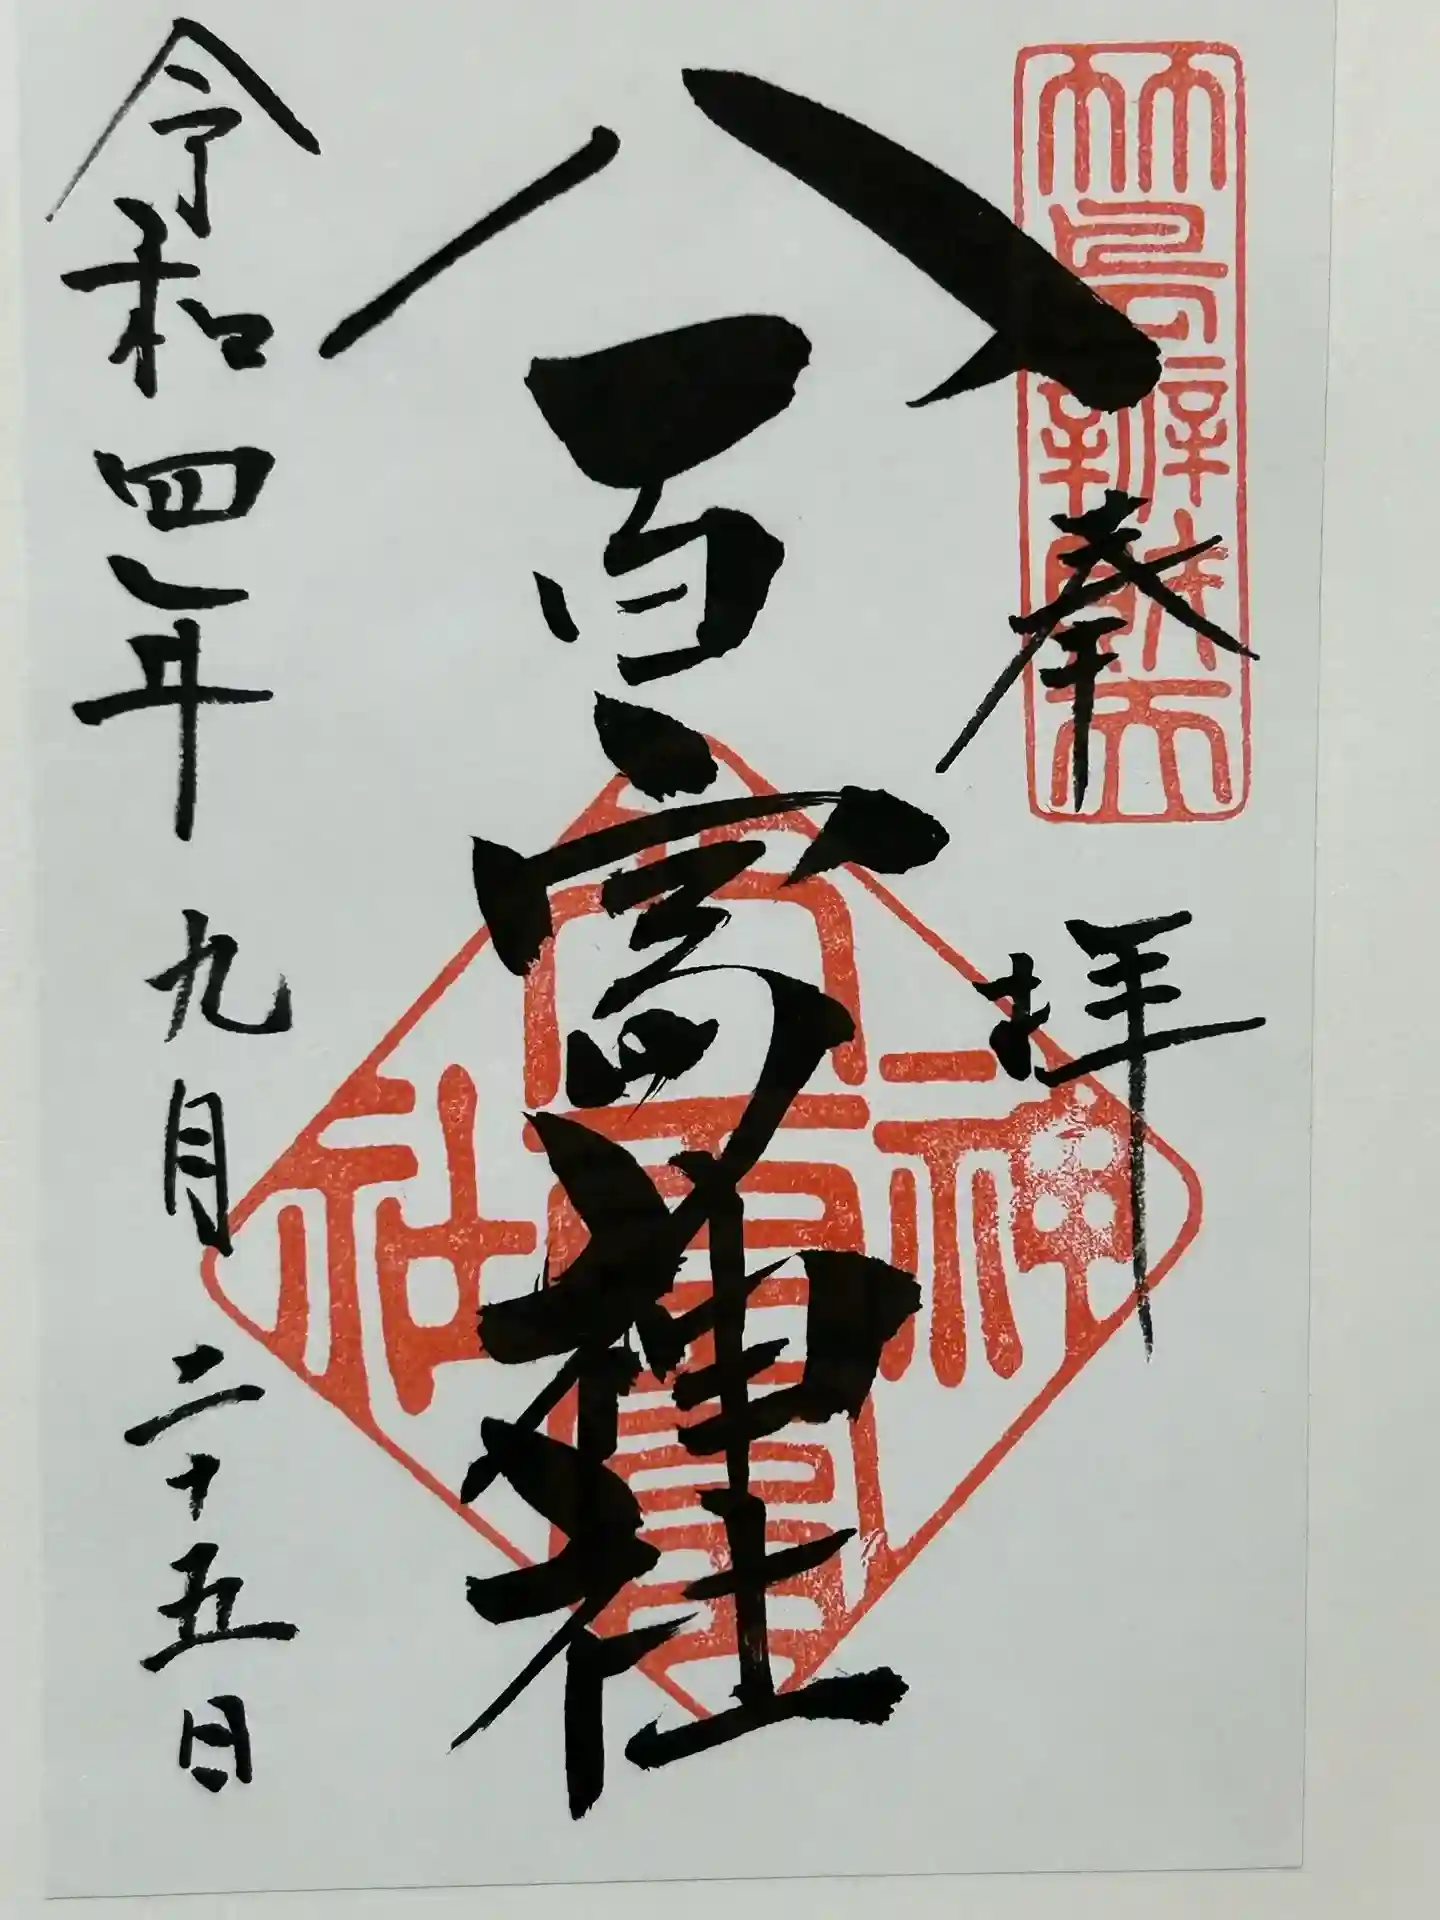 竹島辨財天
奉拝
八百富神社
八百富神社
令和四年九月二十五日